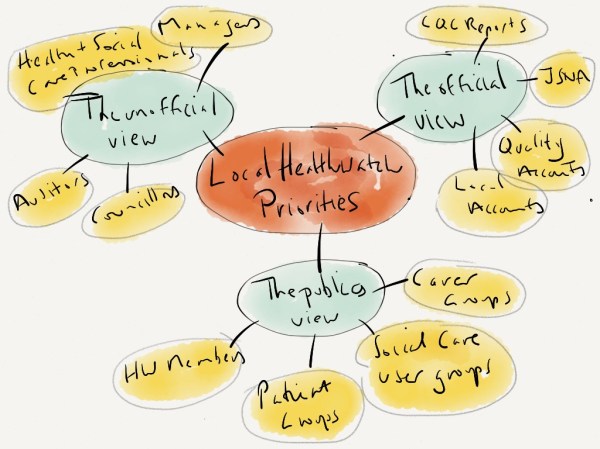 Managers
Health + Social
Care Professionals
The unofficial
view
Auditors
Councillors
CQC Reports
The official
view
JSNA
Quality
Accounts
Local
Accounts
Local Healthwatch
Priorities
The publics
view
Carer
Groups
Social Care
user groups
Patient
Groups
HW Members